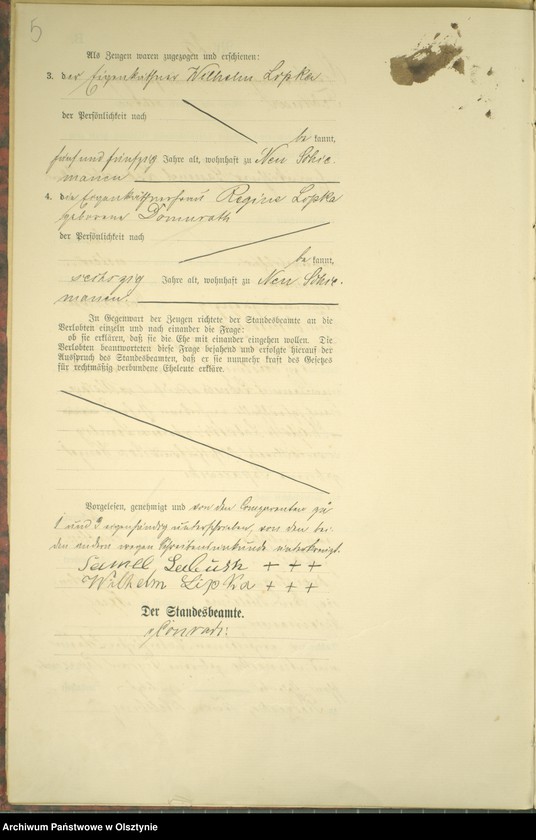 5
Als Zeugen waren zugezogen und erschienen:
3. der Eigenkäthner Wilhelm Lipka
der Persönlichkeit nach
be kannt,
fünf und fünfzig Jahre alt, wohnhaft zu Neu Schie-
manen
4. die Eigenkäthnerfrau Regine Lipka
geborene Domurath
der Persönlichkeit nach
be kannt,
sechszig Jahre alt, wohnhaft zu Neu Schie-
manen.
In Gegenwart der Zeugen richtete der Standesbeamte an die
Verlobten einzeln und nach einander die Frage:
ob sie erklären, daß sie die Ehe mit einander eingehen wollen. Die
Verlobten beantworteten diese Frage bejahend und erfolgte hierauf der
Ausspruch des Standesbeamten, daß er sie nunmehr kraft des Gesetzes
für rechtmäßig verbundene Eheleute erkläre.
Vorgelesen, genehmigt und von den Comparenten zu
1 und 3 eigenhändig unterschrieben, von den bei-
den andern wegen Schreibensunkunde unterkreuzt.
Samel + + +
Wilhelm Lipka + + +
Der Standesbeamte.
Conrad.
Archiwum Państwowe w Olsztynie